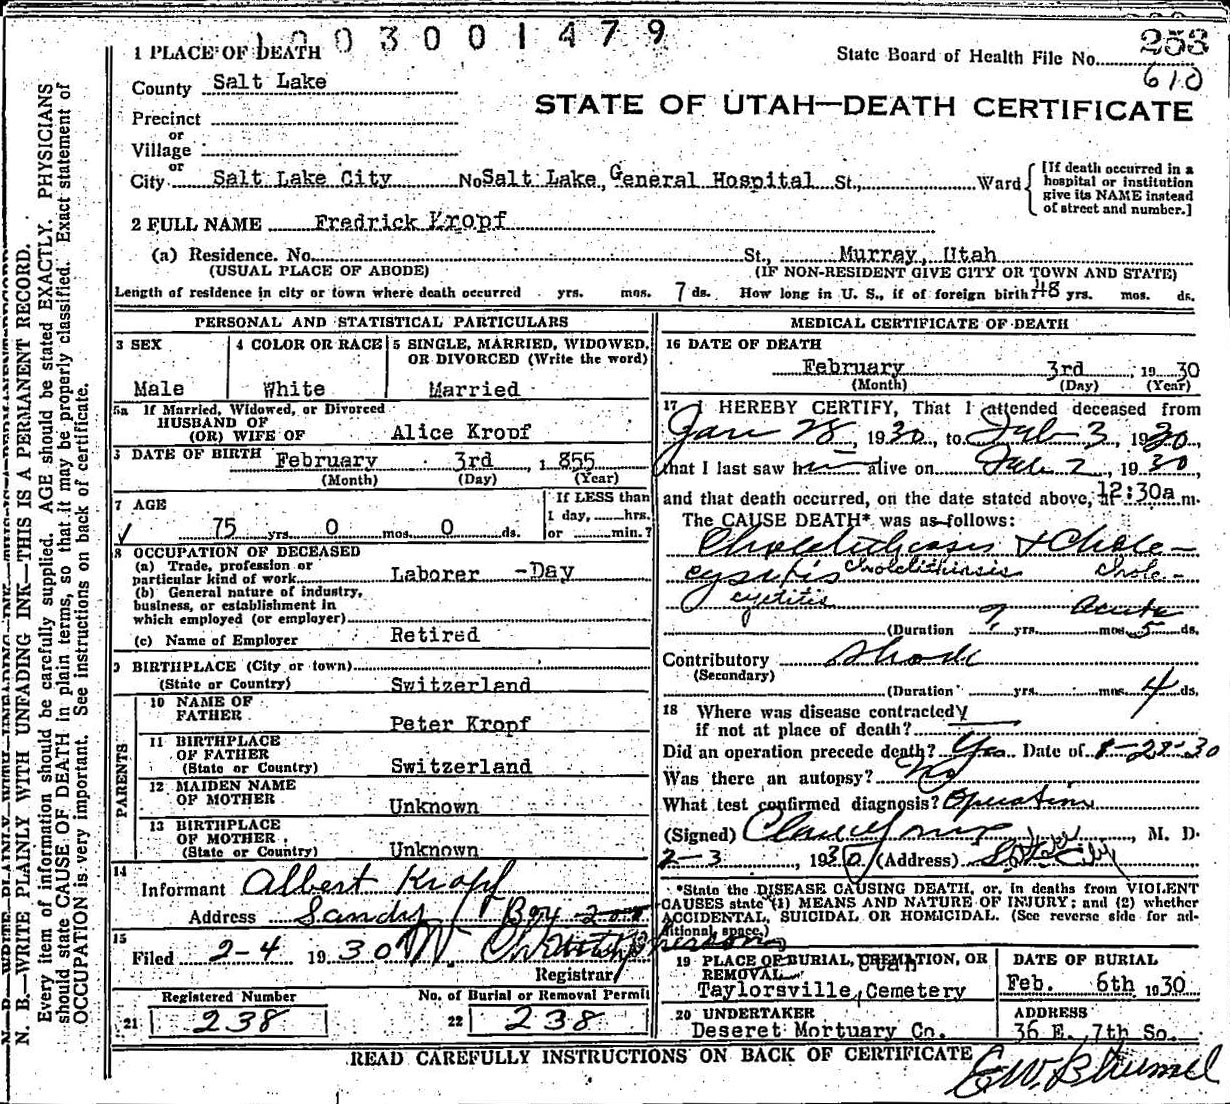 1003001479
1 PLACE OF DEATH
State Board of Health File No. 253
610
County Salt Lake
STATE OF UTAH—DEATH CERTIFICATE
Precinct
or
Village
or
City Salt Lake City No Salt Lake General Hospital St., Ward
[If death occurred in a hospital or institution give its NAME instead of street and number.]
2 FULL NAME Fredrick Kropf
(a) Residence. No. St., Murray, Utah
(USUAL PLACE OF ABODE) (IF NON-RESIDENT GIVE CITY OR TOWN AND STATE)
Length of residence in city or town where death occurred yrs. mos. 7 ds. How long in U. S., if of foreign birth? 48 yrs. mos. ds.
PERSONAL AND STATISTICAL PARTICULARS
3 SEX
Male
4 COLOR OR RACE
White
5 SINGLE, MARRIED, WIDOWED, OR DIVORCED (Write the word)
Married
5a If Married, Widowed, or Divorced
HUSBAND OF
(OR) WIFE OF Alice Kropf
DATE OF BIRTH February 3rd, 1855
(Month) (Day) (Year)
7 AGE
75 yrs. 0 mos. 0 ds.
If LESS than
1 day, hrs.
or min.?
8 OCCUPATION OF DECEASED
(a) Trade, profession or
particular kind of work Laborer -Day
(b) General nature of industry,
business, or establishment in
which employed (or employer)
(c) Name of Employer Retired
9 BIRTHPLACE (City or town)
(State or Country) Switzerland
PARENTS
10 NAME OF
FATHER Peter Kropf
11 BIRTHPLACE
OF FATHER
(State or Country) Switzerland
12 MAIDEN NAME
OF MOTHER Unknown
13 BIRTHPLACE
OF MOTHER
(State or Country) Unknown
14
Informant Albert Kropf
Address Sandy Box 200
15
Filed 2-4 1930
Registrar
Registered Number
21 238
No. of Burial or Removal Permit
22 238
MEDICAL CERTIFICATE OF DEATH
16 DATE OF DEATH
February 3rd, 1930
(Month) (Day) (Year)
17 I HEREBY CERTIFY, That I attended deceased from
Jan 28, 1930, to Feb 3, 1930,
that I last saw him alive on Feb 2, 1930,
and that death occurred, on the date stated above, at 12:30a.m.
The CAUSE DEATH* was as follows:
Cholelithiasis & Chole-
cystitis Cholelithiasis chole-
cystitis
Acute
(Duration ? yrs. mos. 5 ds.
Contributory Shock
(Secondary)
(Duration yrs. mos. 4 ds.
18 Where was disease contracted
if not at place of death?
Did an operation precede death? Yes Date of 1-28-30
Was there an autopsy? No
What test confirmed diagnosis? Operation
(Signed) M. D.
2-3, 1930 (Address)
*State the DISEASE CAUSING DEATH, or, in deaths from VIOLENT
CAUSES state (1) MEANS AND NATURE OF INJURY; and (2) whether
ACCIDENTAL, SUICIDAL OR HOMICIDAL. (See reverse side for ad-
ditional space.)
19 PLACE OF BURIAL, CREMATION, OR
REMOVAL Utah
Taylorsville, Cemetery
DATE OF BURIAL
Feb. 6th 1930
20 UNDERTAKER
Deseret Mortuary Co.
ADDRESS
36 E. 7th So.
READ CAREFULLY INSTRUCTIONS ON BACK OF CERTIFICATE
N. B.—WRITE PLAINLY WITH UNFADING INK—THIS IS A PERMANENT RECORD.
Every item of information should be carefully supplied. AGE should be stated EXACTLY. PHYSICIANS
should state CAUSE OF DEATH in plain terms, so that it may be properly classified. Exact statement of
OCCUPATION is very important. See instructions on back of certificate.